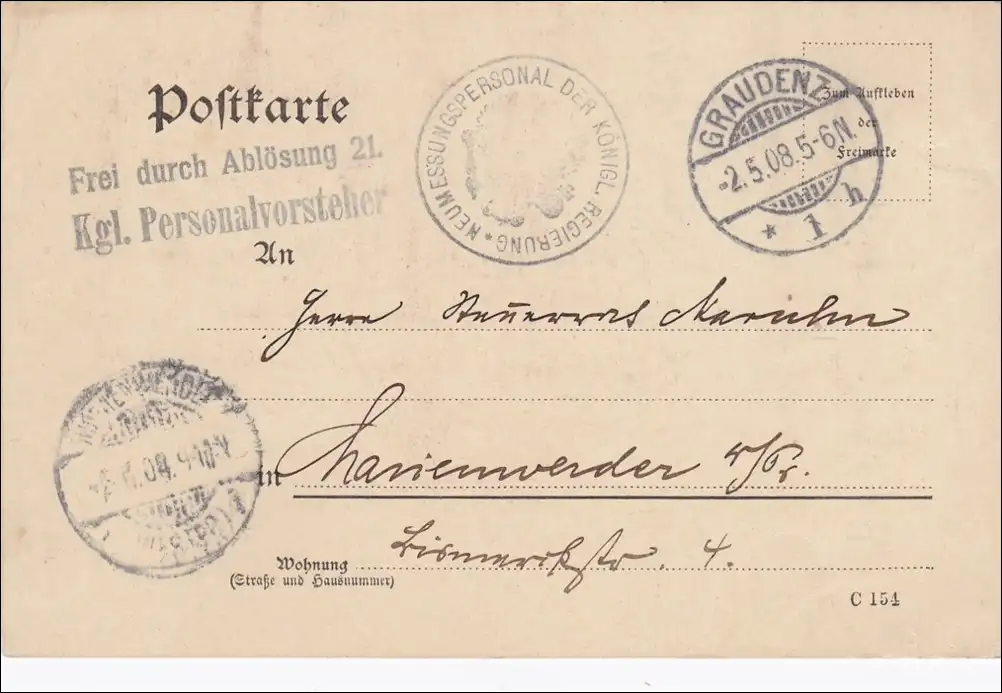 Postkarte
Frei durch Ablösung 21.
Kgl. Personalvorsteher
NEUMESSUNGSPERSONAL DER KÖNIGL. REGIERUNG *
GRAUDENZ
-2.5.08.5-6N.
* 1 h
Zum Aufkleben
der
Freimarke
An
Herrn Steuerrat
MARIENWERDER
in Marienwerder W/Pr.
Bismarckstr. 4.
Wohnung
(Straße und Hausnummer)
C 154